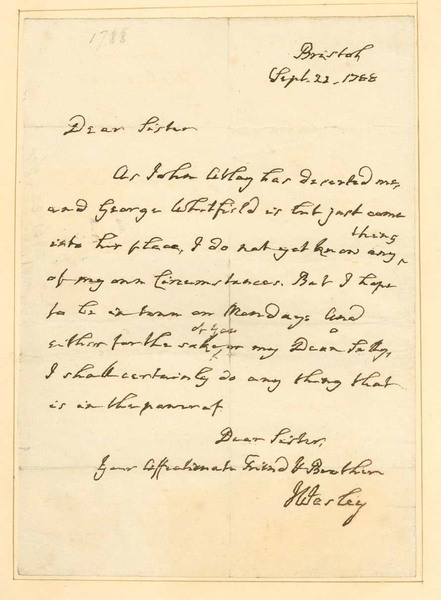 1788
Bristol
Sept. 22. 1788
Dear Sister
As John Atlay has deserted me,
and George Whitfield is but just come
thing
into his place, I do not yet know any
of my own Circumstances. But I hope
to be in town on Monday: And
of you
either for the sake or my Dear Sally,
I shall certainly do any thing that
is in the power of
Dear Sister,
Your Affectionate Friend & Brother
JWesley